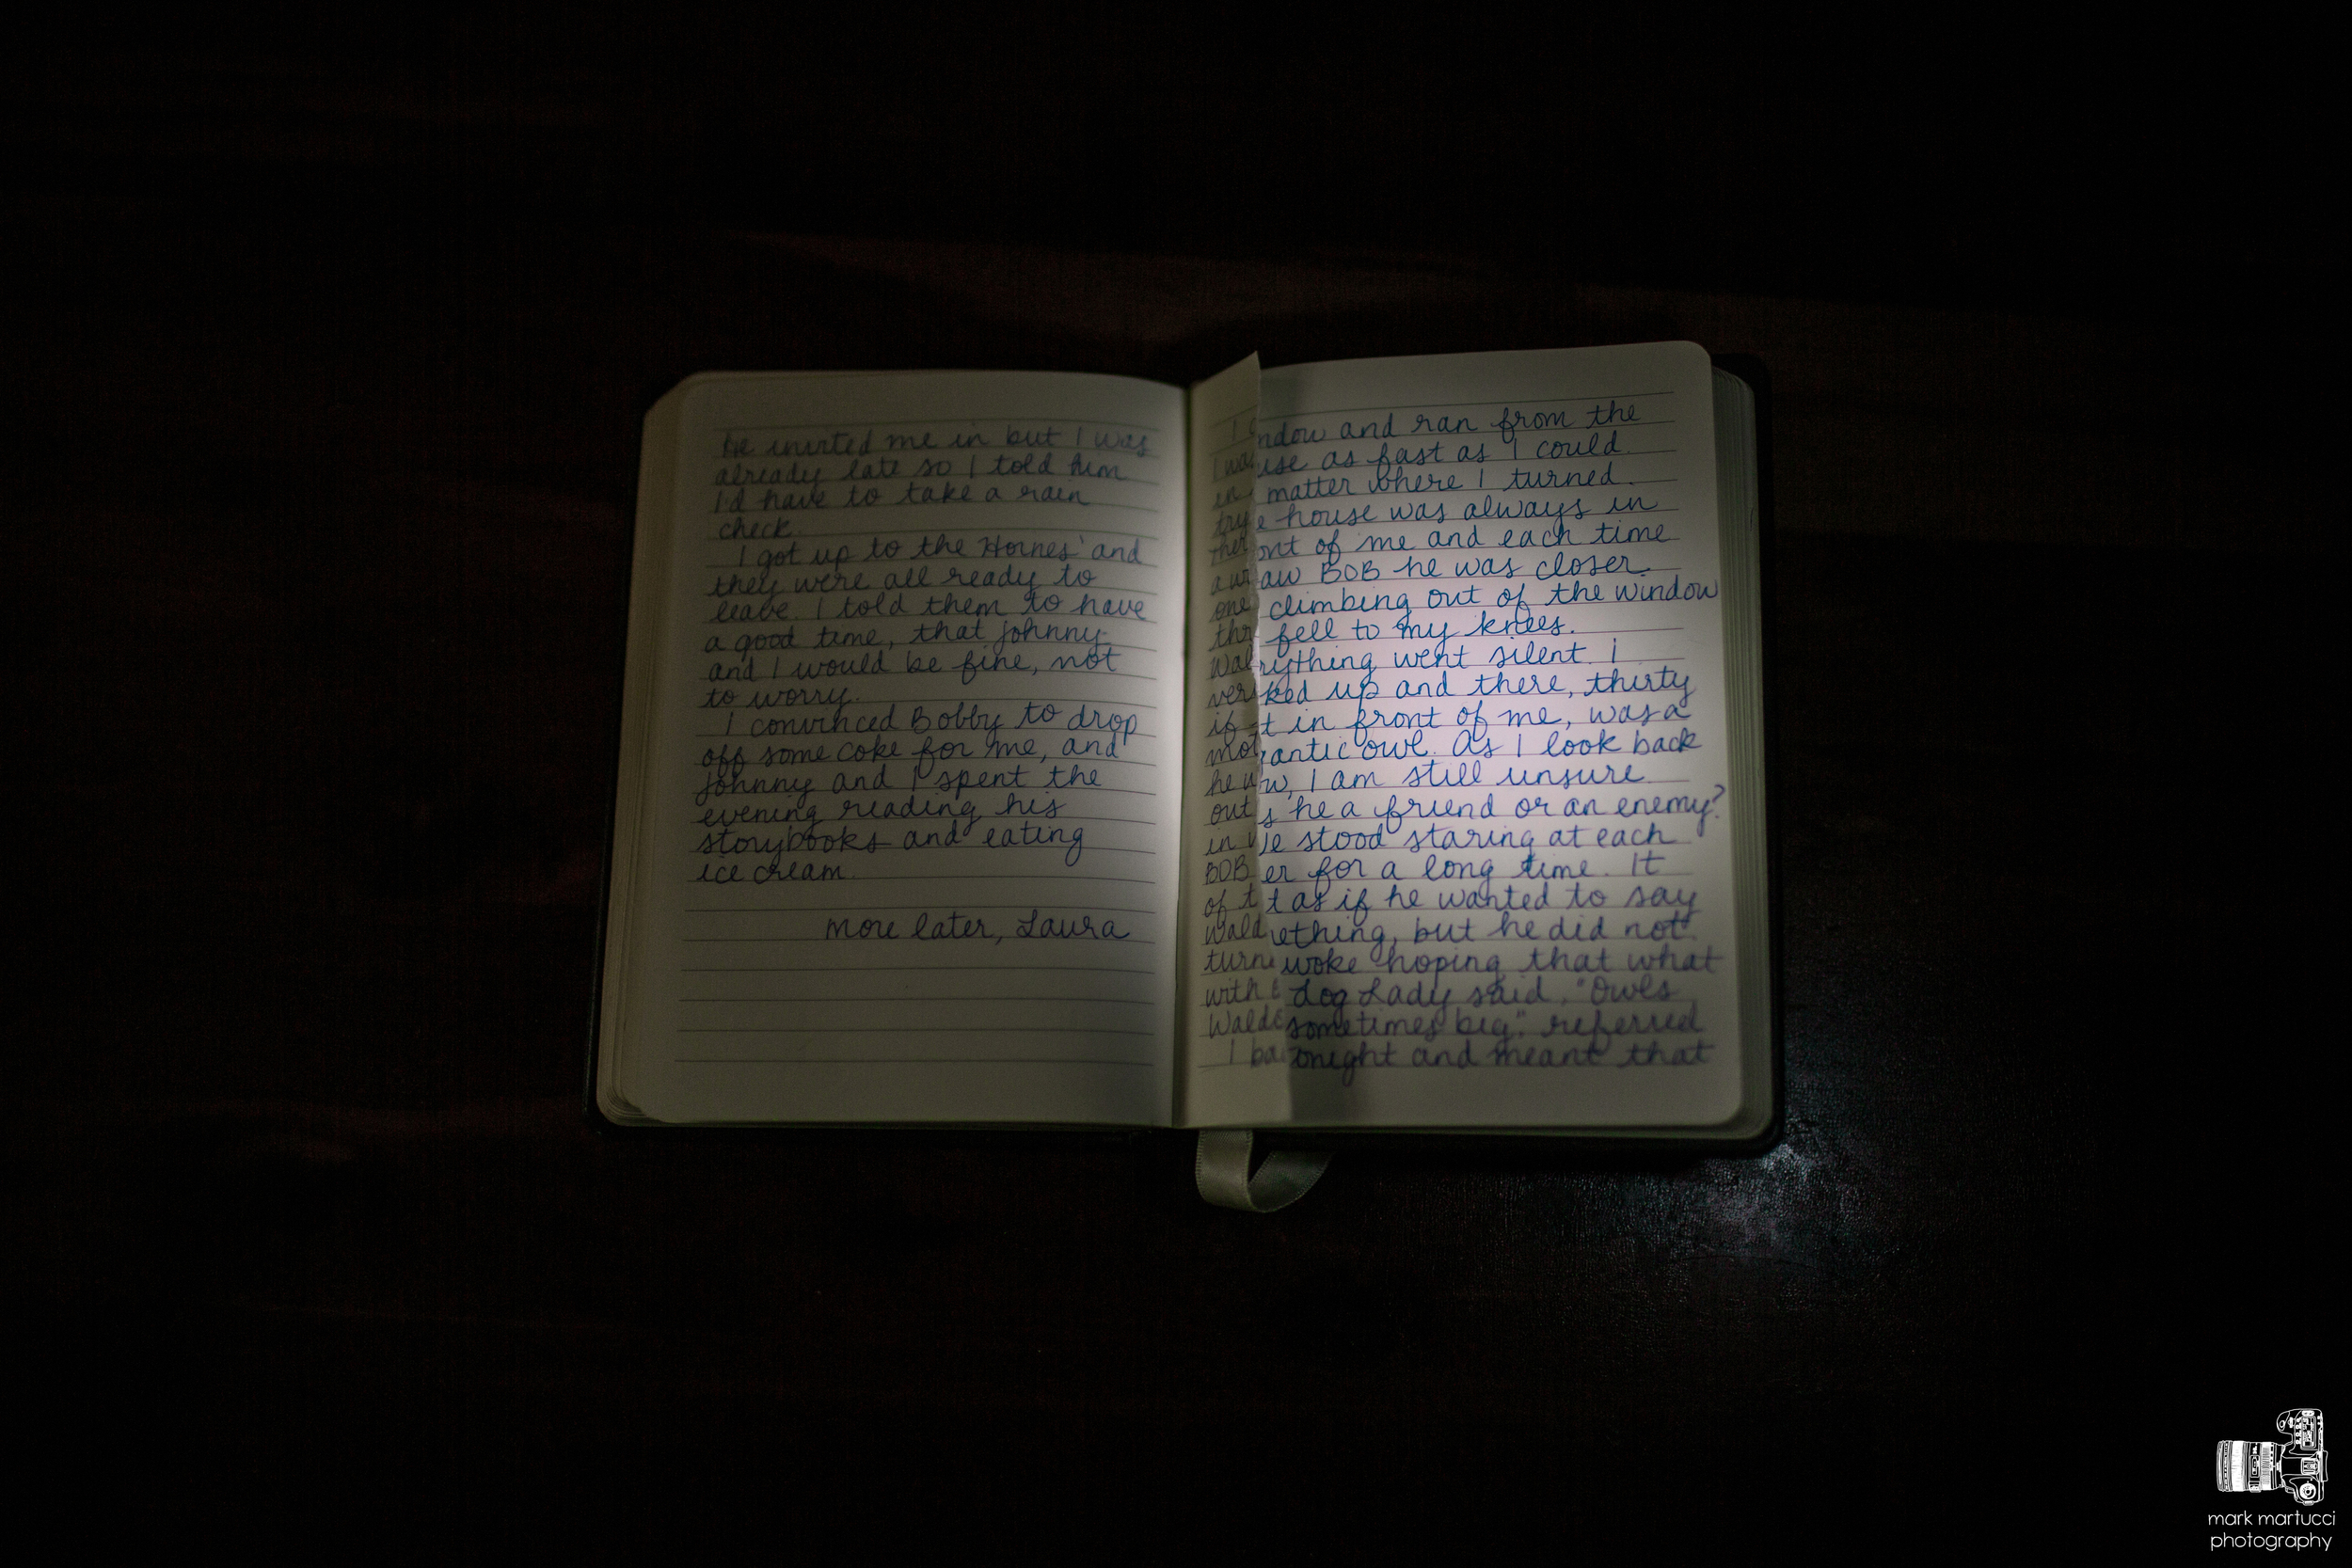 He invited me in but I was
already late so I told him
I'd have to take a rain
check.
I got up to the Hornes' and
they were all ready to
leave. I told them to have
a good time, that Johnny
and I would be fine, not
to worry.
I convinced Bobby to drop
off some coke for me, and
Johnny and I spent the
evening reading his
storybooks and eating
ice cream.
more later, Laura
I
I was
in
try
ther
a w
one
thr
Wal
ver
if
mot
he w
out
in
BOB
of t
Wald
turne
with t
Waldo
I ba
ndow and ran from the
use as fast as I could.
matter where I turned.
e house was always in
ont of me and each time
aw BOB he was closer.
climbing out of the window
fell to my knees.
rything went silent. I
ked up and there, thirty
t in front of me, was a
antic owl. As I look back
w, I am still unsure
s he a friend or an enemy?
e stood staring at each
er for a long time. It
t as if he wanted to say
ething, but he did not.
woke hoping that what
Log Lady said, "Owls
sometimes big," referred
onight and meant that
mark martucci
photography